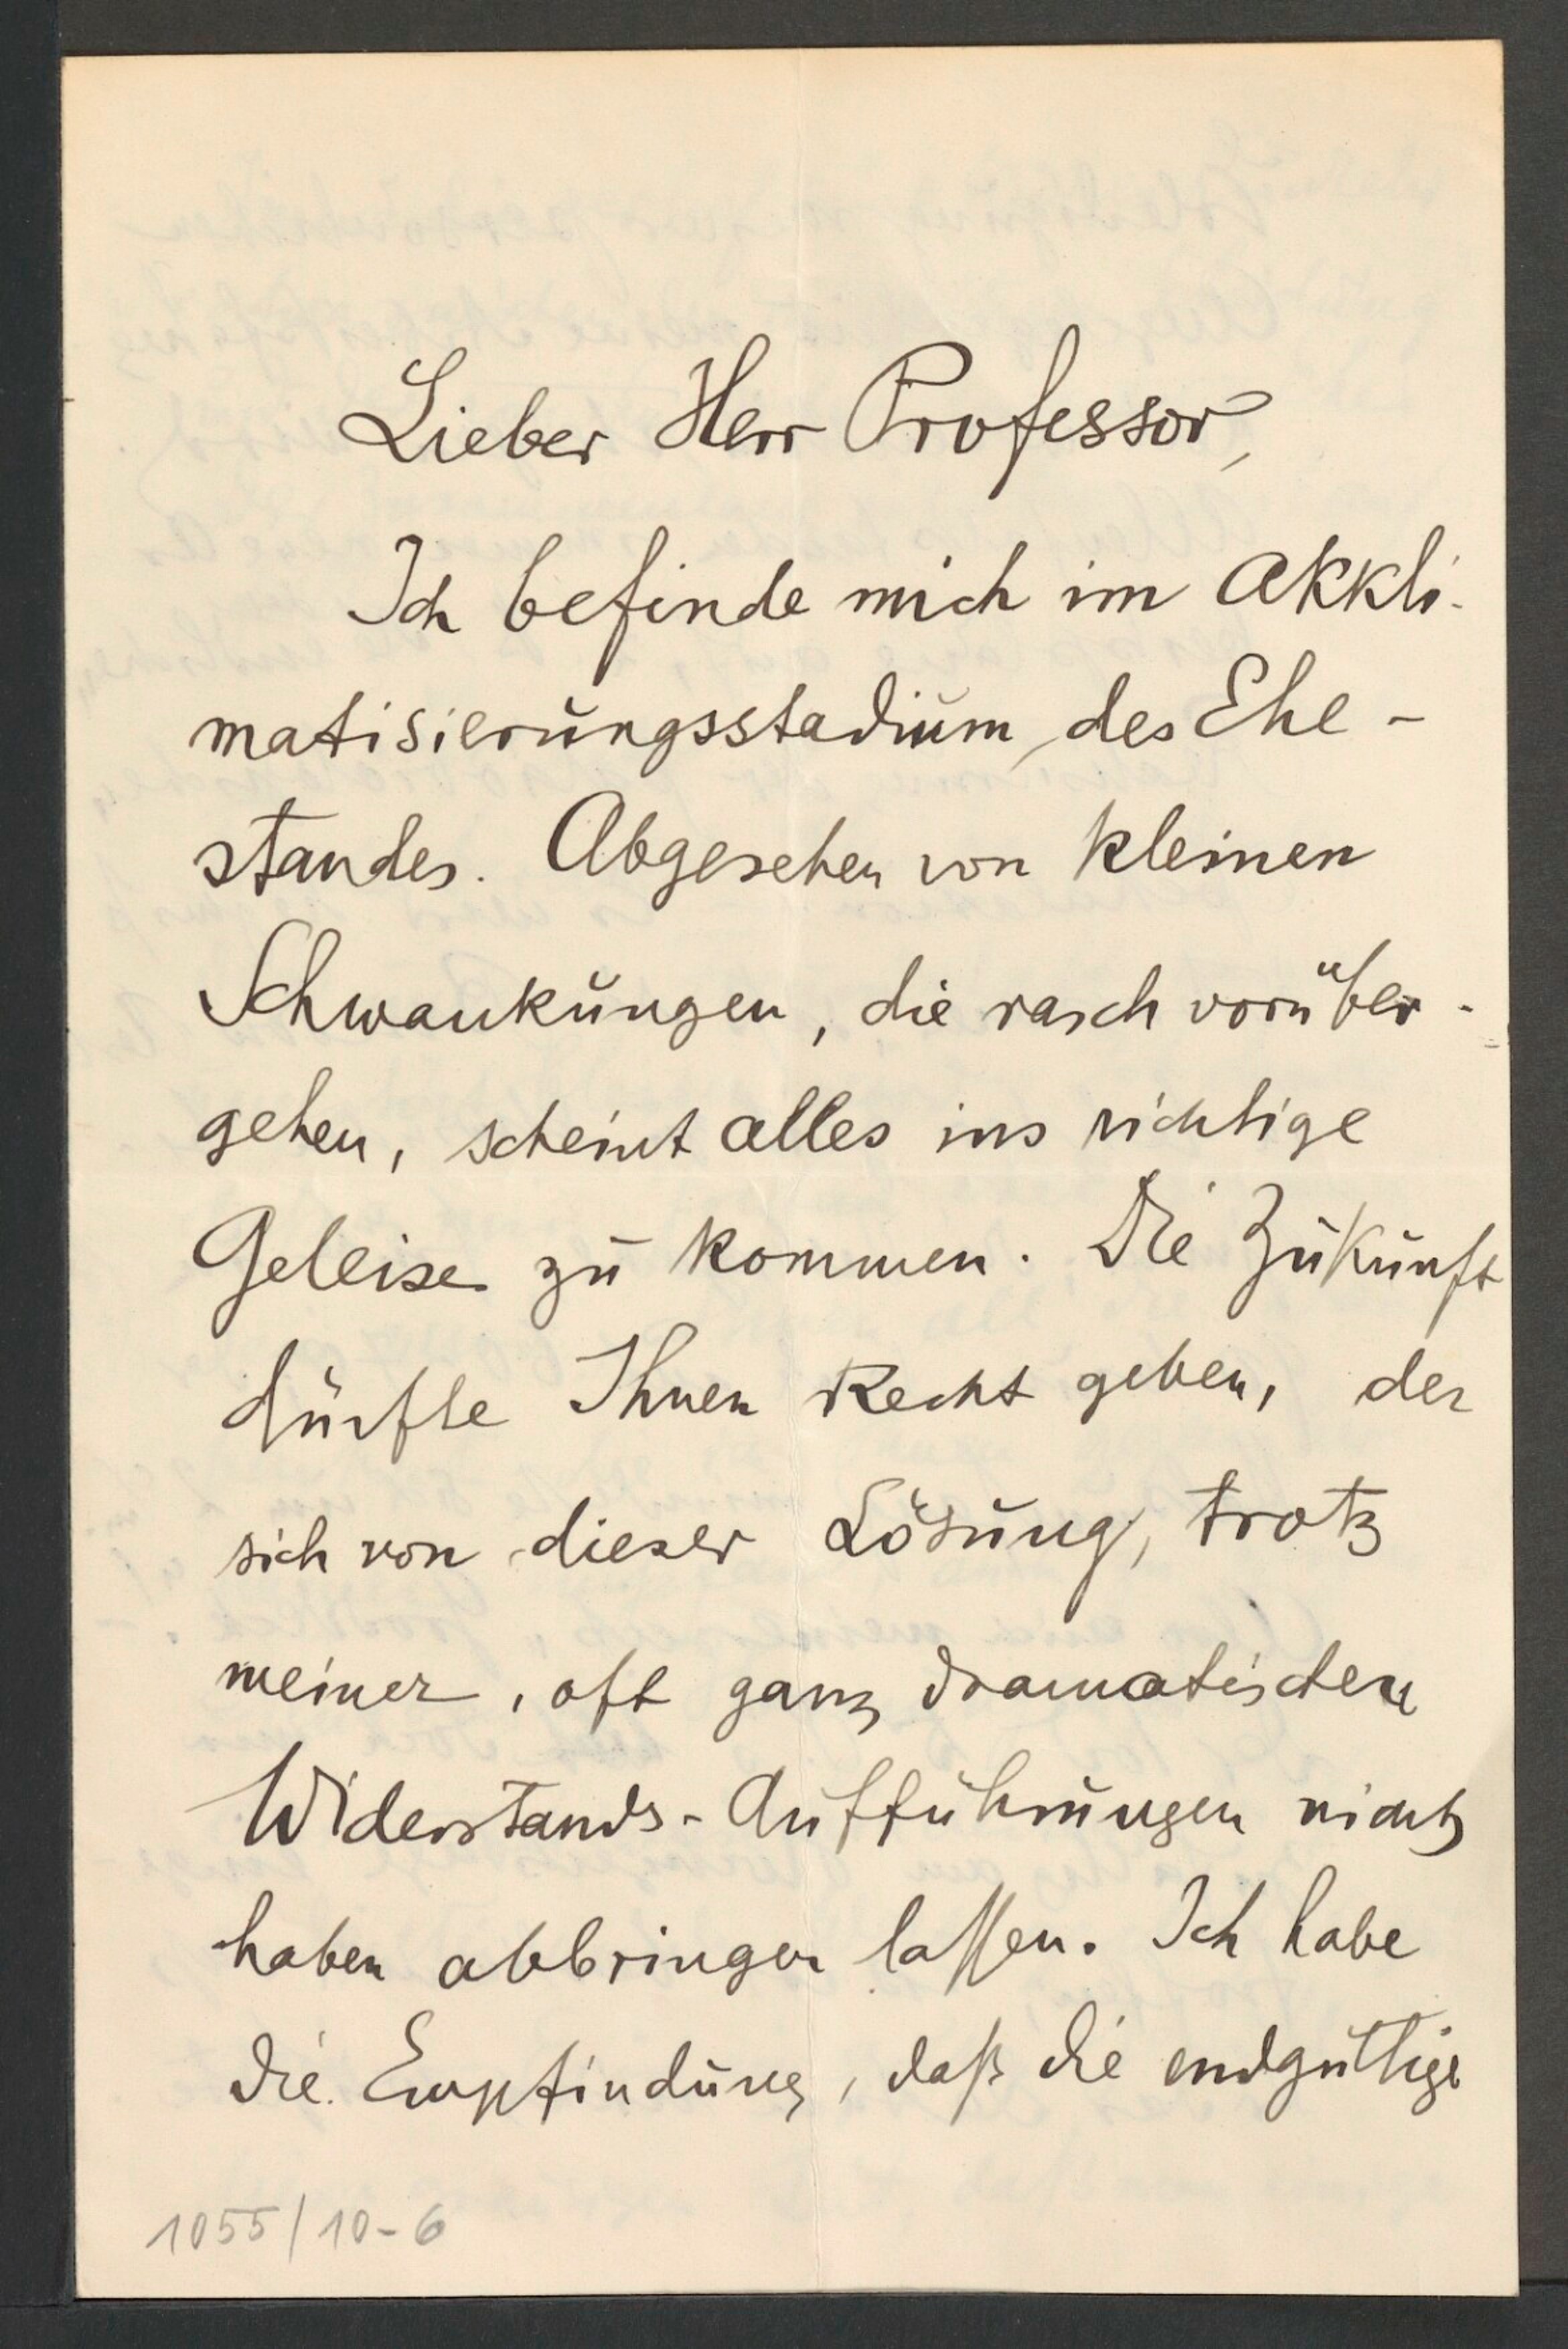 Lieber Herr Professor,
Ich befinde mich im Akkli-
matisierungsstadium des Ehe-
standes. Abgesehen von kleinen
Schwankungen, die rasch vorüber-
gehen, scheint alles ins richtige
Geleise zu kommen. Die Zukunft
dürfte Ihnen Recht geben, der
sich von dieser Lösung, trotz
meiner, oft ganz dramatischen
Widerstands-Aufführungen nicht
haben abbringen lassen. Ich habe
die Empfindung, daß die endgültige
1055/10-6